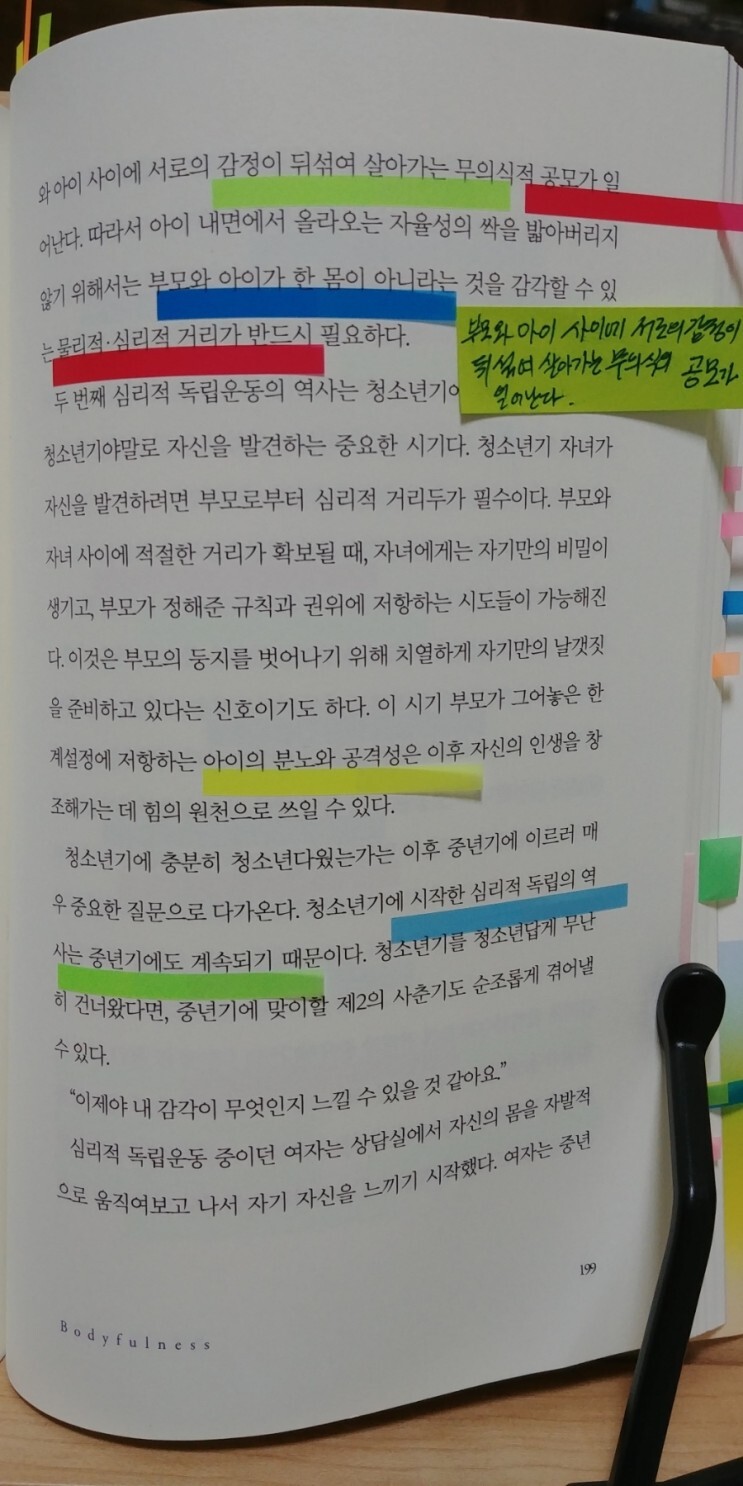 와 아이 사이에 서로의 감정이 뒤섞여 살아가는 무의식적 공모가 일
어난다. 따라서 아이 내면에서 올라오는 자율성의 싹을 밟아버리지
않기 위해서는 부모와 아이가 한 몸이 아니라는 것을 감각할 수 있
는 물리적·심리적 거리가 반드시 필요하다.
부모와 아이 사이에 서로의 감정이
뒤섞여 살아가는 무의식적 공모가
일어난다.
두 번째 심리적 독립운동의 역사는 청소년기에
청소년기야말로 자신을 발견하는 중요한 시기다. 청소년기 자녀가
자신을 발견하려면 부모로부터 심리적 거리두가 필수이다. 부모와
자녀 사이에 적절한 거리가 확보될 때, 자녀에게는 자기만의 비밀이
생기고, 부모가 정해준 규칙과 권위에 저항하는 시도들이 가능해진
다. 이것은 부모의 둥지를 벗어나기 위해 치열하게 자기만의 날갯짓
을 준비하고 있다는 신호이기도 하다. 이 시기 부모가 그어놓은 한
계설정에 저항하는 아이의 분노와 공격성은 이후 자신의 인생을 창
조해가는 데 힘의 원천으로 쓰일 수 있다.
청소년기에 충분히 청소년다웠는가는 이후 중년기에 이르러 매
우 중요한 질문으로 다가온다. 청소년기에 시작한 심리적 독립의 역
사는 중년기에도 계속되기 때문이다. 청소년기를 청소년답게 무난
히 건너왔다면, 중년기에 맞이할 제2의 사춘기도 순조롭게 겪어낼
수 있다.
“이제야 내 감각이 무엇인지 느낄 수 있을 것 같아요.”
심리적 독립운동 중이던 여자는 상담실에서 자신의 몸을 자발적
으로 움직여보고 나서 자기 자신을 느끼기 시작했다. 여자는 중년
199
Bodyfulness